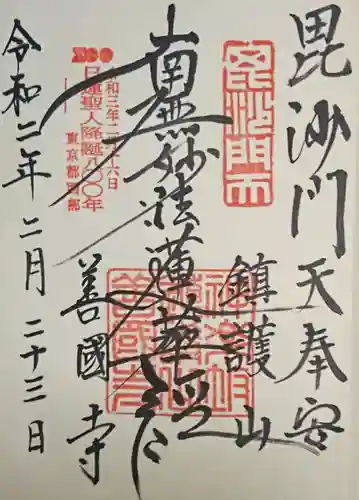 毘沙門天奉安
鎮護山
毘沙門天
南無妙法蓮華経
善國寺
令和三年二月十六日
日蓮聖人降誕八〇〇年
東京都西部
令和二年二月二十三日